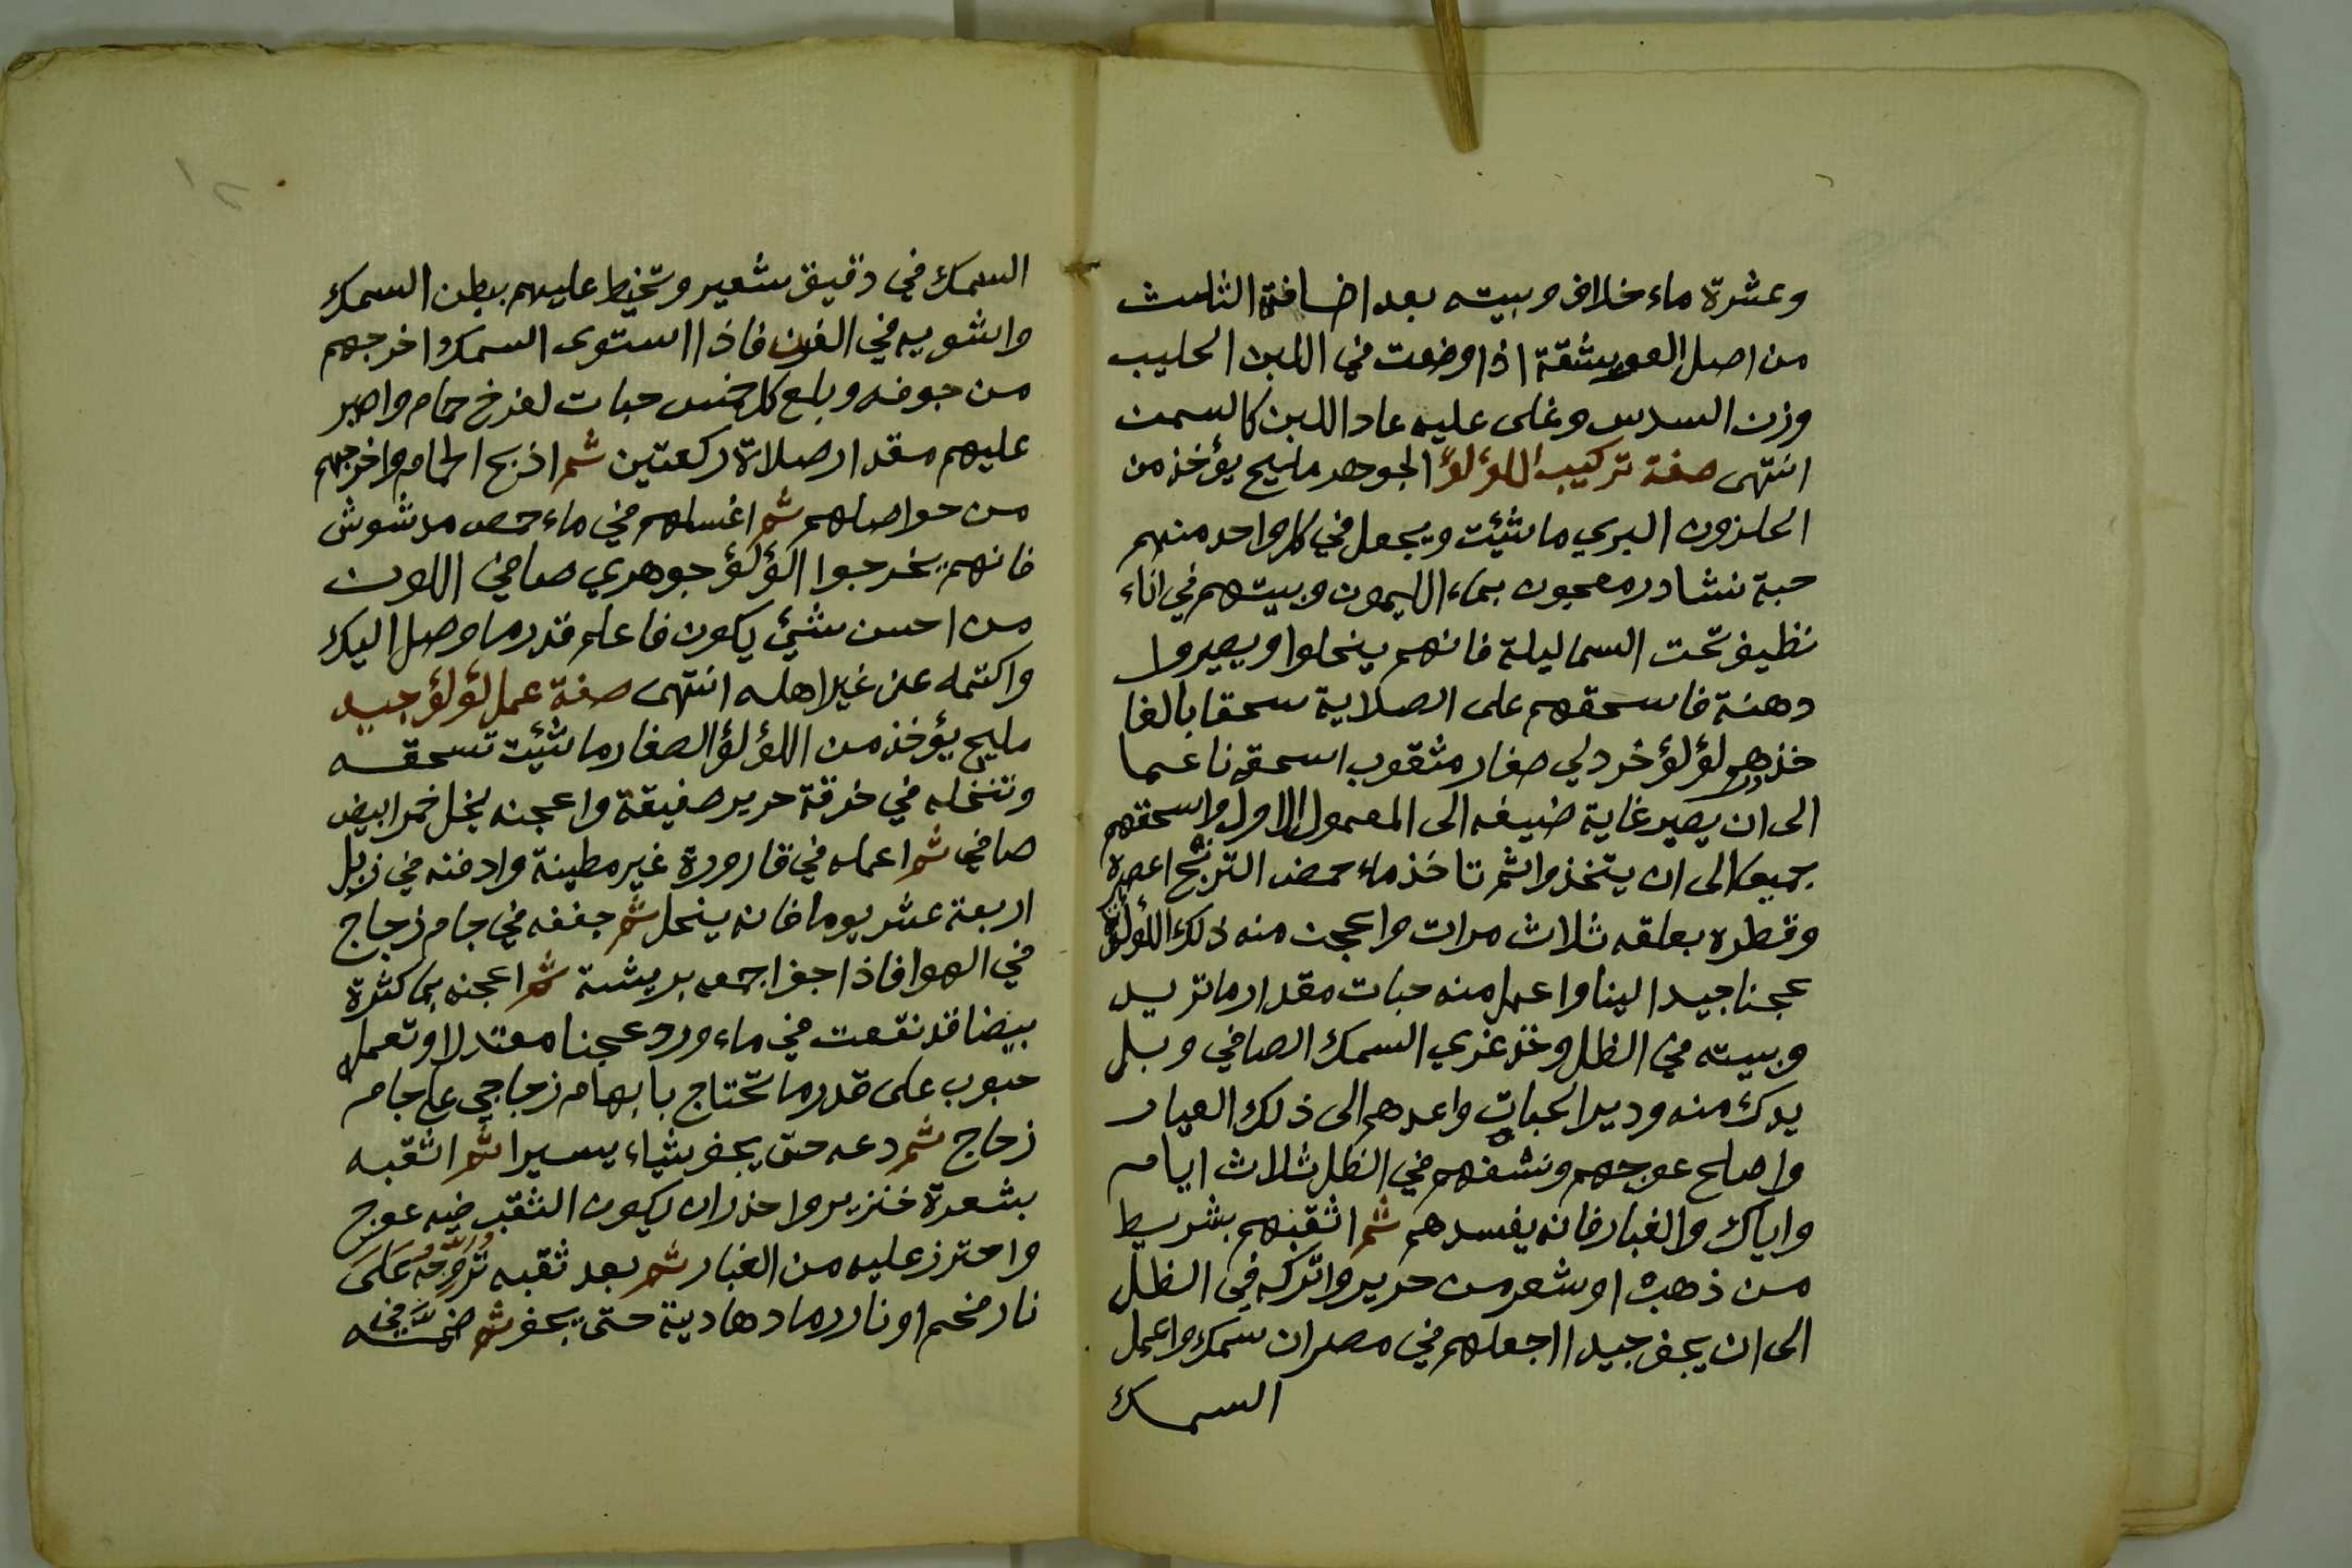 وعشرة ماء خلاف وبيته بعد اضافة الثلث
من اصل العويشقة اذا وضعت في اللبن الحليب
وزن السدس وغلى عليه عاد اللبن كالسمن
انتهى صفة تركيب اللؤلؤ الجوهر مليح يؤخذ من
الحلزون البري ما شئيت ويجعل في كل واحد منهم
حبة نشادر معجون بماء الليمون وبيتهم في اناء
نظيف تحت السما ليلة فانهم ينحلوا ويصيروا
دهنة فاسحقهم على الصلاية سحقا بالغا
خذ لؤلؤ خردلي صغار مثقوب اسحقه ناعما
الى ان يصير غاية ضيفه الى المعمول الاول واسحقهم
جميعا الى ان يتخذوا ثم تاخذ ماء حمض الترنج اعصره
وقطره بعلقه ثلاث مرات واعجن منه ذلك اللؤلؤ
عجنا جيدا لينا واعمل منه حبات مقدار ما تريد
وبيته في الظل وخذ غري السمك الصافي وبل
يدك منه ودير الحبات واعدهم الى ذلك العيار
واصلح عوجهم ونشفهم في الظل ثلاث ايام
واياك والغبار فانه يفسدهم ثم اثقبهم بشريط
من ذهب او شعر من حرير واتركه في الظل
الى ان يجف جيدا اجعلهم في مصران سمك واعمل
السمك
السمك في دقيق شعير وتخيط عليهم بطن السمك
واشويه في الفرن فاذا استوى السمك اخرجهم
من جوفه وبلع كل خمس حبات لفرخ حمام واصبر
عليهم مقدار صلاة ركعتين ثم اذبح الحمام واخرجهم
من حواصلهم ثم اغسلهم في ماء حمص مدشوش
فانهم يخرجوا الؤلؤ جوهري صافي اللون
من احسن شئي يكون فاعلم قدر ما وصل اليك
واكتمه عن غير اهله انتهى صفة عمل لؤلؤ جيد
مليح يؤخذ من اللؤلؤ الصغار ما شئيت تسحقه
وتنخله في خرقة حرير صفيقة واعجنه بخل خمر ابيض
صافي ثم اعمله في قارورة غير مطينة وادفنه في زبل
اربعة عشر يوما فانه ينحل ثم جففه في جام زجاج
في الهوا فاذا جف اجمعه بريشة ثم اعجنه بما كثرة
بيضا قد نقعت في ماء ورد عجنا معتدلا وتعمل
حبوب على قدر ما تحتاج بابهام زجاجي على جام
زجاج ثم دعه حتى يجف شياء يسيرا ثم اثقبه
بشعرة خنزير واحذر ان يكون الثقب فيه عوج
واحترز عليه من الغبار ثم بعد ثقبه على
نار فحم او نار رماد هادية حتى يجف ثم